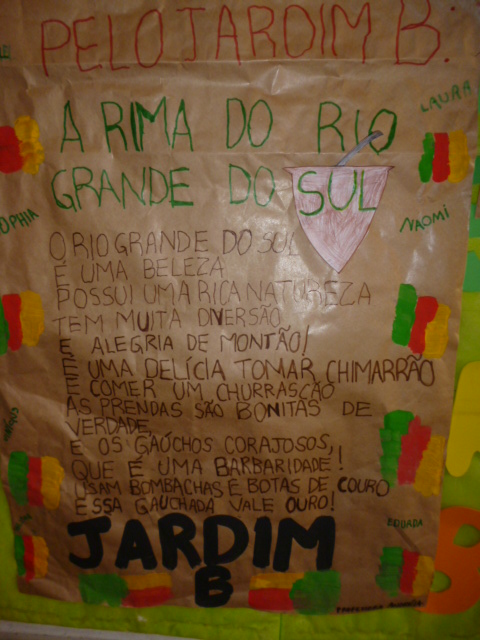 PELO JARDIM B:
A RIMA DO RIO
GRANDE DO SUL
LAURA
SOPHIA
NAOMI
O RIO GRANDE DO SUL
É UMA BELEZA
POSSUI UMA RICA NATUREZA
TEM MUITA DIVERSÃO
E ALEGRIA DE MONTÃO!
É UMA DELÍCIA TOMAR CHIMARRÃO
E COMER UM CHURRASCÃO
AS PRENDAS SÃO BONITAS DE
VERDADE,
E OS GAÚCHOS CORAJOSOS,
QUE É UMA BARBARIDADE!
USAM BOMBACHAS E BOTAS DE COURO
ESSA GAUCHADA VALE OURO!
JARDIM
B